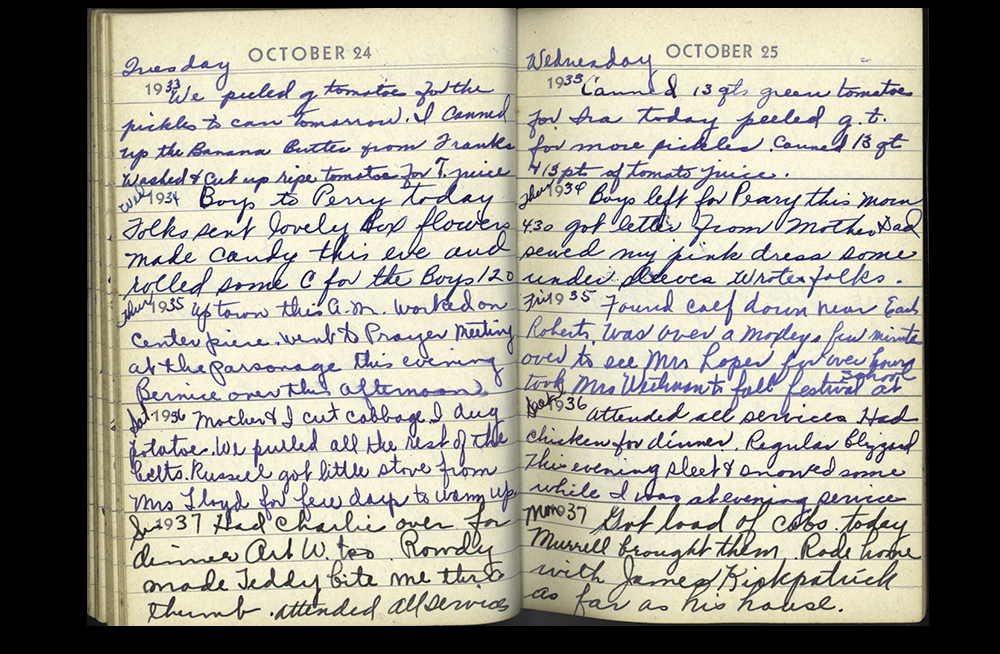 OCTOBER 24
Tuesday
1933 We peeled g tomatoes for the
pickles to can tomorrow. I canned
up the Banana Butter from Franks
Washed & cut up ripe tomatoes for T. juice
Wed 1934 Boys to Perry today
Folks sent lovely Box flowers
made candy this eve and
rolled some C for the Boys 120
Thur 1935 Up town this A.M. Worked on
center piece. Went to Prayer Meeting
at the Parsonage this evening
Bernice over this afternoon
Sat 1936 Mother & I cut cabbage. I dug
potatoes. We pulled all the rest of the
beets. Russell got little stove from
Mrs Lloyd for few days to warm up.
Sun 1937 Had Charlie over for
dinner Art W. too. Rowdy
made Teddy bite me thru
thumb. attended all services
OCTOBER 25
Wednesday
1933 Canned 13 qts green tomatoes
for Ira today peeled g.t.
for more pickles. Canned 13 qt
& 13 pts of tomato juice.
Thur 1934 Boys left for Peary this morn
4:30 got letter from Mother & Dad
sewed my pink dress some
under sleeves Wrote folks.
Fri 1935 Found calf down near Earl
Roberts. Was over a few minute
over to see Mrs Loper for over hour
took Mrs to fall festival at
school
1936 Attended all services Had
chicken for dinner. Regular blizzard
this evening sleet & snowed some
while I was at evening service
Mon 1937 Got load of cobs today
Murrell brought them. Rode home
with James Kirkpatrick
as far as his house.